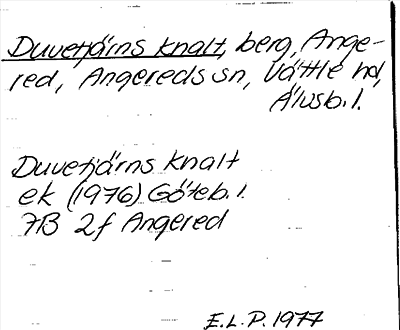 Duvetjärns knalt, berg, Ange-
red, Angereds sn, Vättle hd,
Älvsb. l.
Duvetjärns knalt
ek (1976) Göteb. l.
7B 2f Angered
E.L.P. 1977